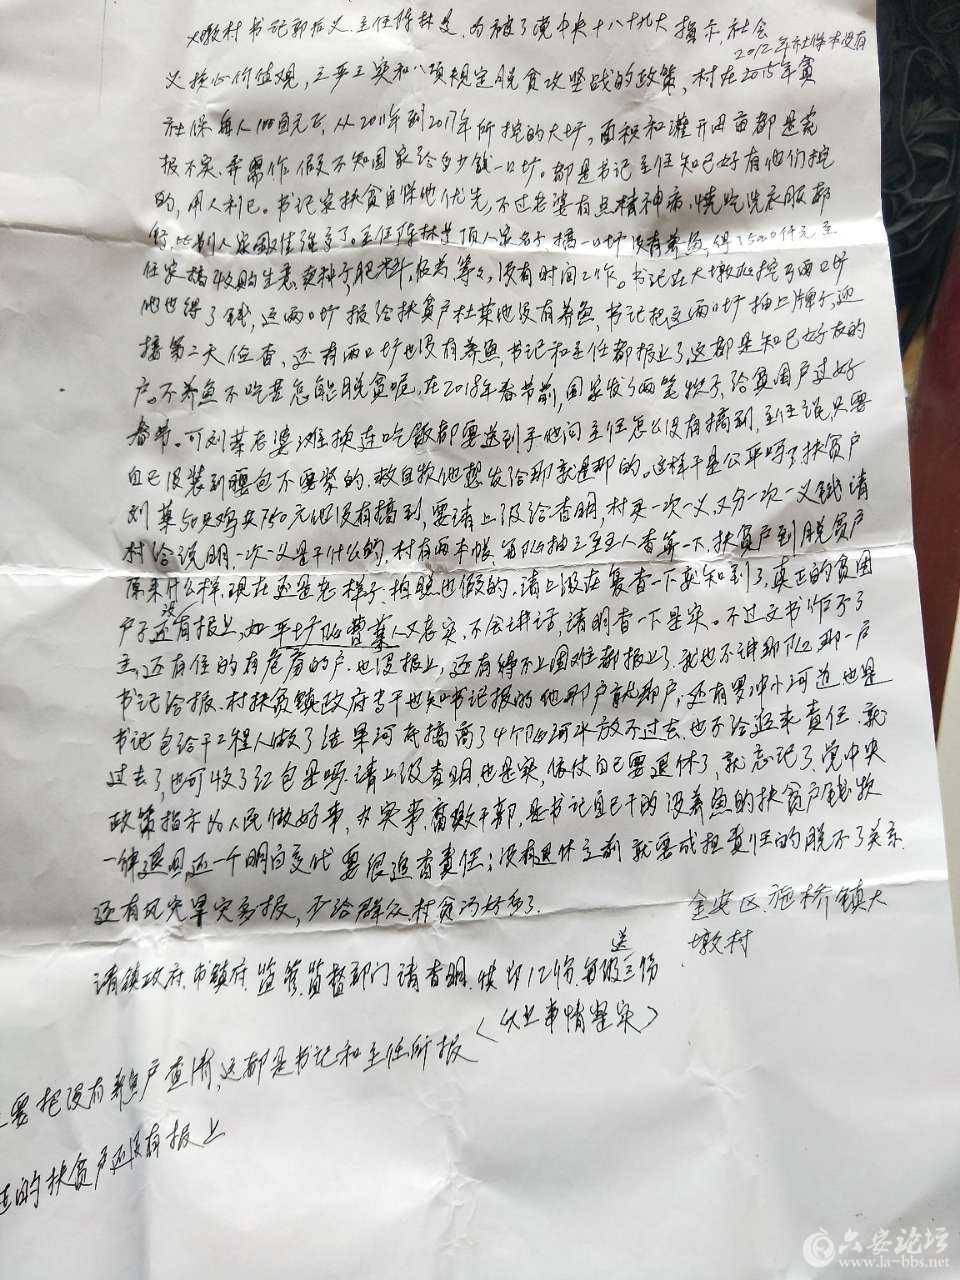 大墩村书记郭 义.主任陈林 .为 了党中央十八十九大 指示,社会
2012年社保本没有
义核心价值观,三严三实和八项规定脱贫攻坚战的政策,村在2015年贫
社保每人100 元正,从2011年到2017年所挖的大圩,面积和灌开田亩都是
报不实.弄 作假不知国家给多少钱一口圩。都是书记主任知己好有他们挖
的,用人利己。书记家扶贫自保他优先,不过老婆有点精神病,烧吃洗衣服都
行,比别人家困难强多了。主任陈林 顶人家名字搞一口圩没有养鱼,得了5000仟元主
任家搞收购生意.卖种子肥料.伍为等等,没有时间工作。书记在大墩 挖了两口圩
他也得了钱,这两口圩报给扶贫户杜某他没有养鱼,书记把这两口圩抽上牌子,迎
接第二天位查,还有两口圩也没有养鱼,书记和主任都报上了,这都是知己好友的
户。不养鱼不吃苦怎能脱贫呢,在2018年春节前,国家发了两笔款子,给贫困户过好
春节。可刘某老婆 连吃饭都要送到手他问主任怎么没有搞到,主任说,只要
自己没装到腰包不要紧的.救自款他想发给那就是那的。这样干是公平吗?扶贫户
刘某50只鸡共750元他没有搞到,要请上级给查明,村买一次一义,又分一次一义钱请
村给说明一次一义是干什么的,村有两本帐.每队抽三至五人查算一下.扶贫户到脱贫户
原来什么样.现在还是老样子.拍照也假的.请上级在复查一下就知到了,真正的贫困
户子还没有报上,如平圩队曹某人又老实,不会讲话,请明查一下是实。不过文书作不了
主,还有住的有危房的户.也没报上,还有得不上困难都报上了.我也不讲那队那一户
书记给报.村扶贫镇政府当干也知书记报的他那户就那户,还有 冲小河道也是
书记包给干工程人做了结果河底搞高了4个队河水放不过去,也不给追求责任.就
过去了,也可收了红包是吗.请上级查明,也是实,依仗自己要退休了,就忘记了,党中央
政策指示为人民做好事,办实事,腐败干部,是书记自己干的没养鱼的扶贫户钱款
一律退回,还一个明白交代 要很追查责任;没有退休之前就要成担责任的脱不了关系.
还有风灾旱灾多报,少给群众村贪污好多了.
金安区.施桥镇大
墩村
请镇政府.市镇府.监管.监督部门请查明.快印12份.每级送三份
(以上事情坚实)
要把没有养鱼户查清,这都是书记和主任所报
的扶贫户还没有报上
六安论坛
www.la-bbs.net